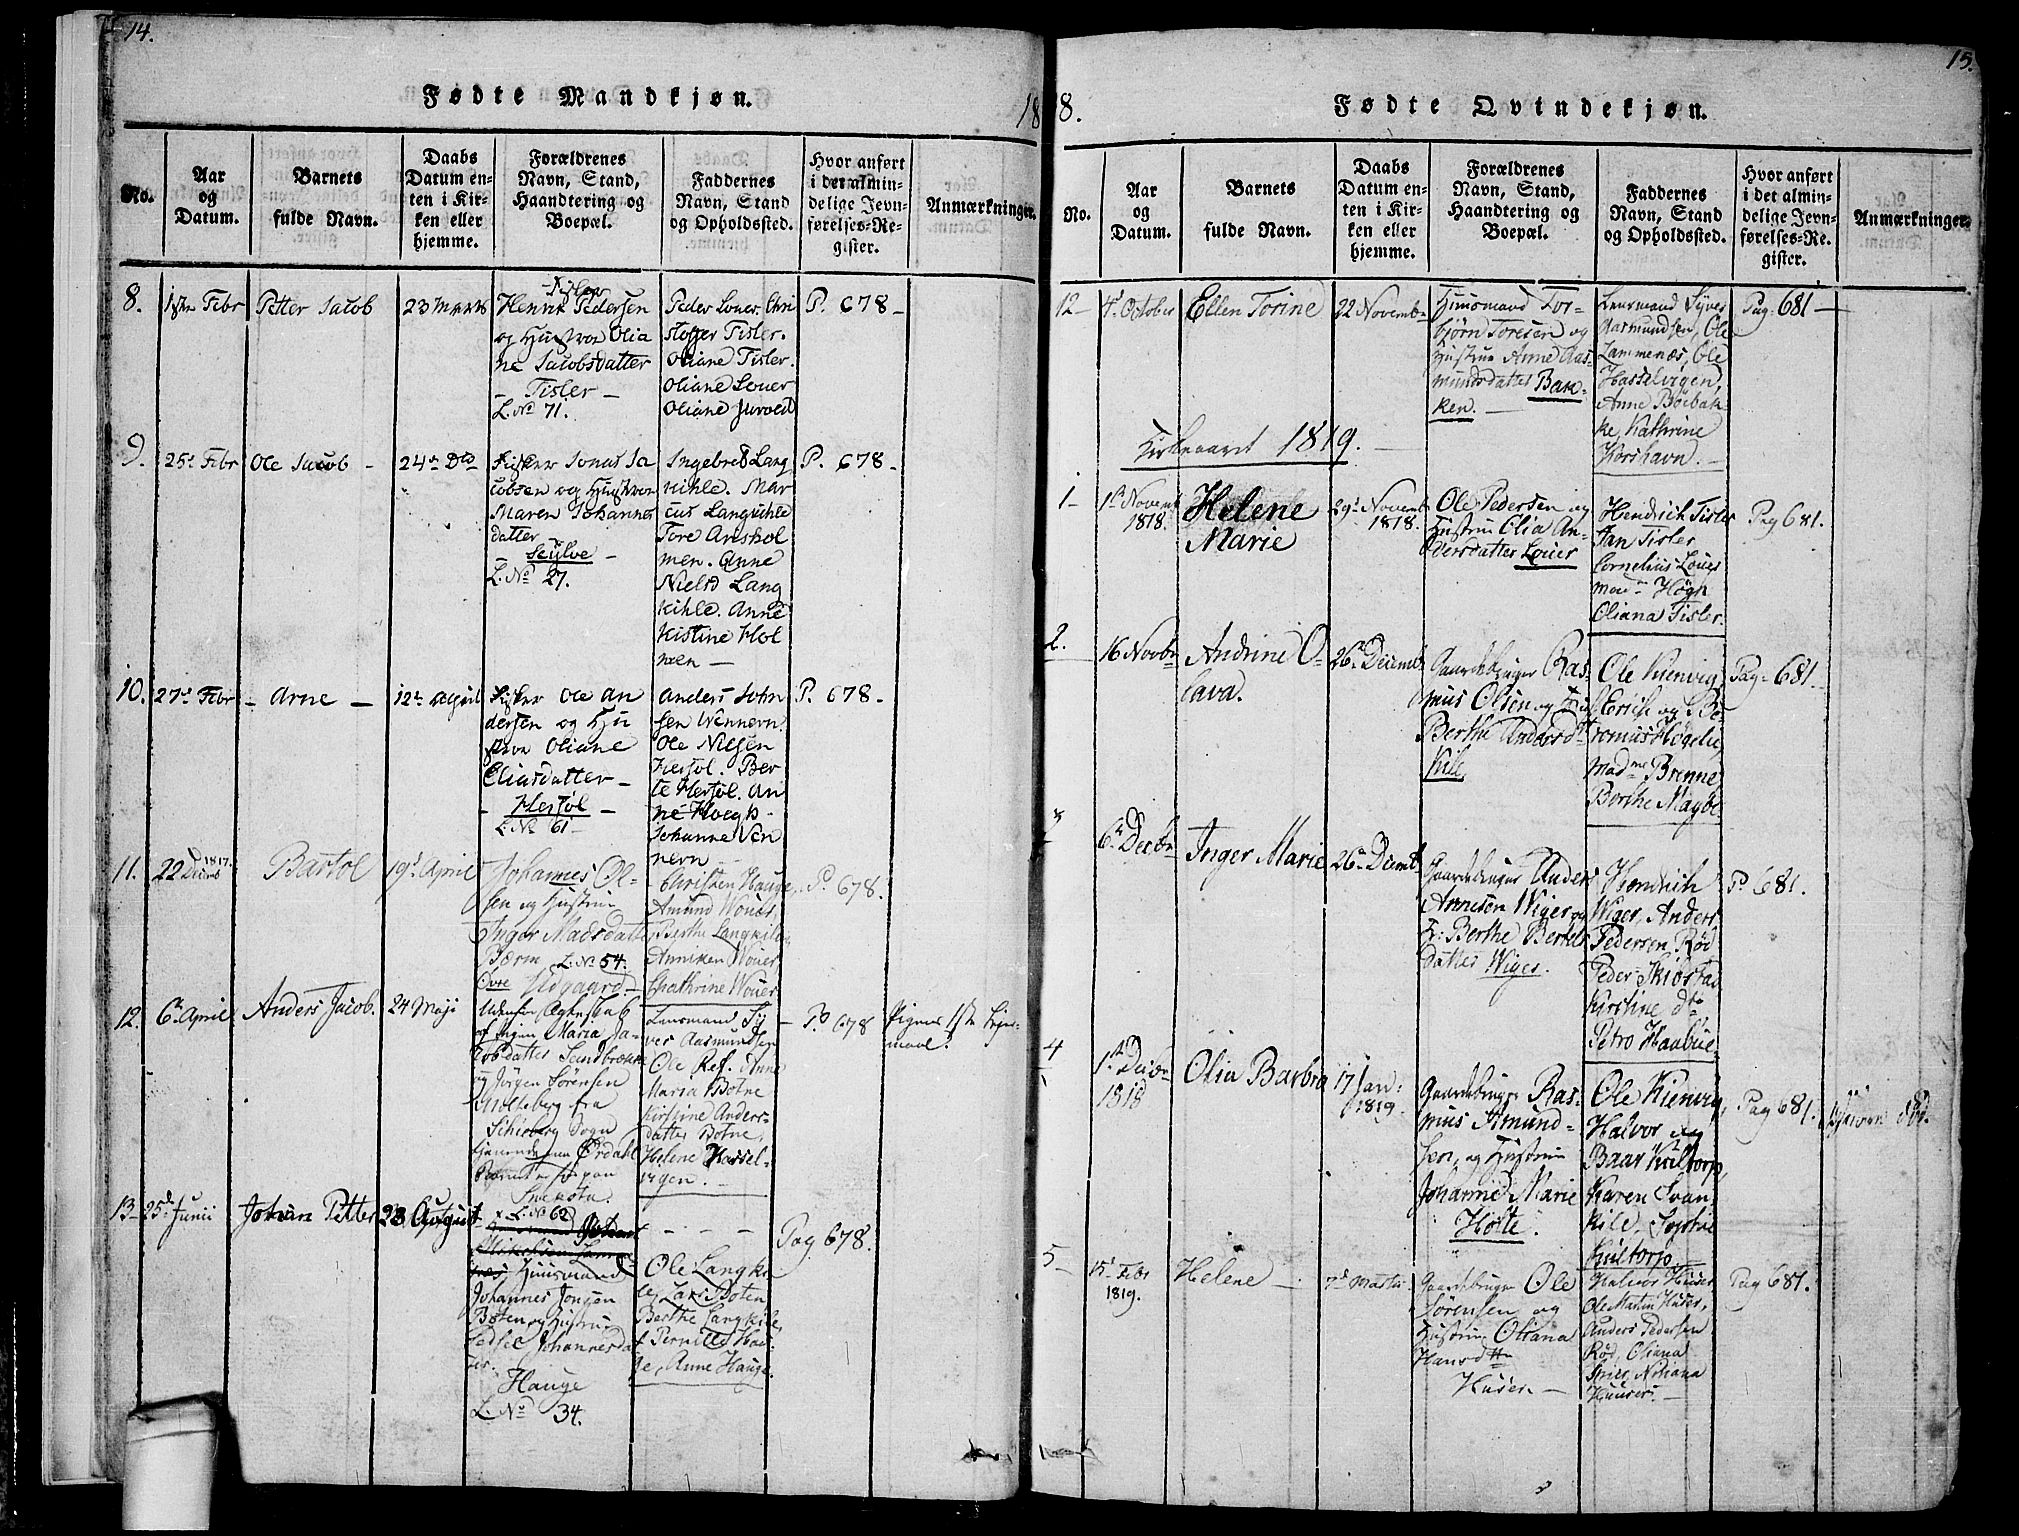 14.
Fødte Mandkjøn.
18
No.
Aar
og
Datum.
Barnets
fulde Navn.
Daabs
Datum en-
ten i Kir-
ken eller
hjemme.
Forældrenes
Navn, Stand,
Haandtering og
Boepæl.
Faddernes
Navn, Stand
og Opholdsted.
Hvor anført
i det almin-
delige Jevn-
førelses-Re-
gister.
Anmærkninger.
8.
1ste Febr
Petter Jacob
23 Marts
Fisker
Henrik Pedersen
og Hustroe Olia
ne Jacobsdatter
– Tisler –
L. No 71.
Peder Louer. Chri
stoffer Tisler.
Oliane Tisler.
Oliane Louer
Oliane
P. 678 –
9.
25d Febr
Ole Jacob –
24de Do
Fisker Jonas Ja
cobsen og Hustroe
Maren Johannes
datter
–
L. No 27.
Ingebret Lang
kihle. Mar
cus Langkihle
Tore Anshol
men. Anne
Niels Lang
kihle. Anne
Kistine Hol
men –
P. 678 –
10.
27d Febr
– Arne –
12te April
Fisker Ole An
dersen og Hu
stroe Oliane
Eliasdatter –
– Hersøl –
L. No 61 –
Anders John
sen Vennevn.
Ole Nielsen
Hersøl. Ber
te Hersøl. An
ne Hoegh –
Johanne Ven
nevn –
P. 678 –
11.
22 Decembr 1817.
Bartol
19d April
Johannes Ol-
sen og Hustrue
Inger Madsdatter
L. No 54.
Øvre Udgaard –
– Christen Hauge,
Amund Wouer,
Berthe Langkile,
Anniken Wouer
Chathrine Wouer
P. 678.
12.
6te April
Anders Jacob.
24 Maji
Udenfor Ægteskab
af Pigen Maria Ja-
kobsdatter Sandbrække
og Jørgen Sørensen
Molteberg fra
Schieberg Sogn
Ørdahl
Snekota.
x L. No 62
Lensmand Sy-
ver Aasmundsen
Ole Ref. Anne
Maria Botne
Kirstine Anders-
datter Botne,
Helene Hassel-
vigen. –
– Po 678
Pigens 1ste Leier-
maal.
13 –
25d Junii
Johan Petter
23 August
Huusmand
Johannes Jonsen
Boten og Hustrue
Johannesda
Hauge
L. No 34.
– – –
Ole Langki
le, Lars Boten
Berthe Langkile,
Pernille Hau
ge, Anne Hauge.
Pag 678.
15.
8.
Fødte Qvindekjøn.
No.
Aar
og
Datum.
Barnets
fulde Navn.
Daabs
Datum en-
ten i Kir-
ken eller
hjemme.
Forældrenes
Navn, Stand,
Haandtering og
Boepæl.
Faddernes
Navn, Stand
og Opholdssted.
Hvor anført
i det almin-
delige Jevn-
førelses-Re-
gister.
Anmærkninger.
12 –
4d October
Ellen Torine
22 Novembr
Huusmand Tor-
bjørn Toresen og
Hustrue Anne Aas-
mundsdatter Bak-
ken. –
Lensmand Syver
Aasmundsen, Ole
Lammenæs, Ole
Hasselvigen,
Anne Bøebak-
ke, Kathrine
Korshavn. –
Pag. 681 –
Kirkeaaret 1819. –
1 –
1d Novemb
1818.
Helene
Marie
29d Novemb
1818.
Ole Pedersen og
Hustrue Olia An-
dersdatter Louer
Hendrich Tisler
Jan Tisler
Cornelius Louer
mad. Högh
Oliana Tisler.
Pag 681.
2.
16 Novbr
Andrine O-
lava.
26d Decemb.
Gaardebruger Ras-
mus Olsen og Hust
Berthe Andersdtr
Kile
Ole Kienvig
Erich og
mus Høgelie,
Madme Brenne,
Berthe Magbøe
Pag – 681 –
3
6te Decbr
Inger Marie
26d Decemb
Gaardebruger Anders
Arnesen Wiger og
H: Berthe Bertels
datter Wiger.
Hendrich
Wiger, Anders
Pedersen Rød
Peder Skiøstad
Kirstine do
Petro Haabue –
P. 681.
4
1te Decbr
1818
Olia Barbra
17 Jan:
1819.
Gaardebruger Ras-
mus Amund-
sen, og Hustrue
Johanne Marie
Holte.
Ole Kienvig,
Halvor og
Baar Kultorp,
Karen Svan-
kile. Sophie
Kultorp
Pag 681.
5 –
15d Febr
1819.
Helene –
7d Marts
Gaardebruger Ole
Sørensen og
Hustrue Oliana
Hansdtr
Huser –
Halvor Huser,
Ole Martin Huser,
Anders Pedersen
Rød, Oliana
Spier, Noliana
Huuser –
Pag 681.